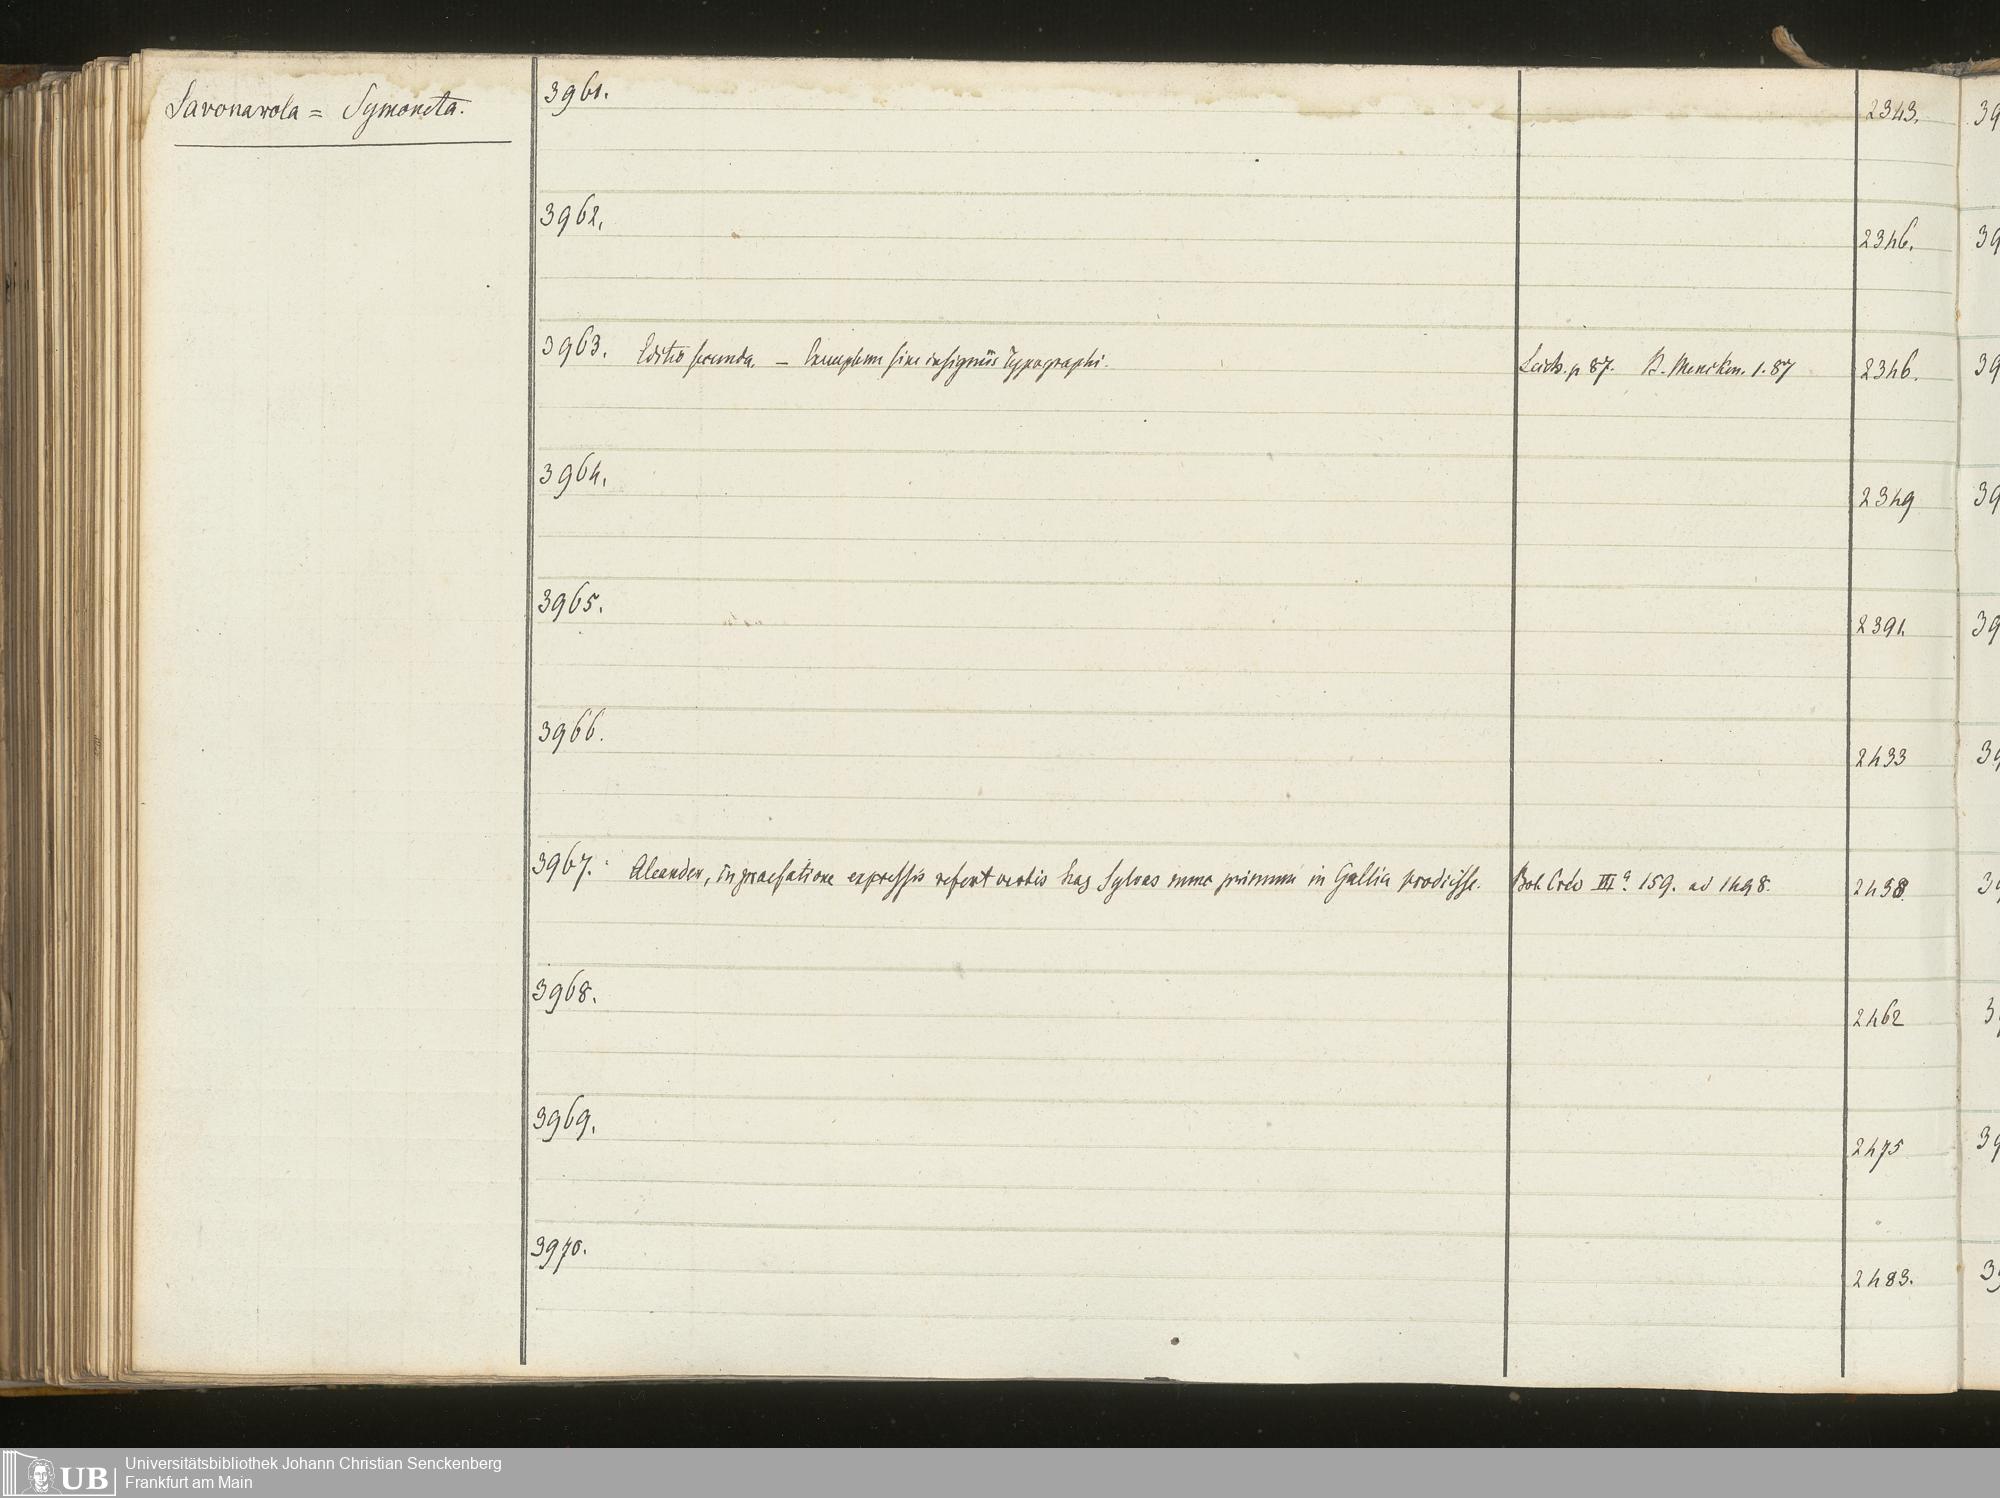 Savonarola = Symoneta.
3961. 2343. 39
3962. 2346. 39
3963. Editio secunda. — Exemplum sine insigniis Typographi. p 87. B. Mencken. 1. 87 2346. 39
3964. 2349 39
3965. 2391. 39
3966. 2433 39
3967. Aleander, in praefatione expressis refert verbis has Sylvas nunc primum in Gallia prodiisse. Bib. Crev III a. 159. ad 1498. 2438 39
3968. 2462 3
3969. 2475 39
3970. 2483. 39
UB Universitätsbibliothek Johann Christian Senckenberg
Frankfurt am Main